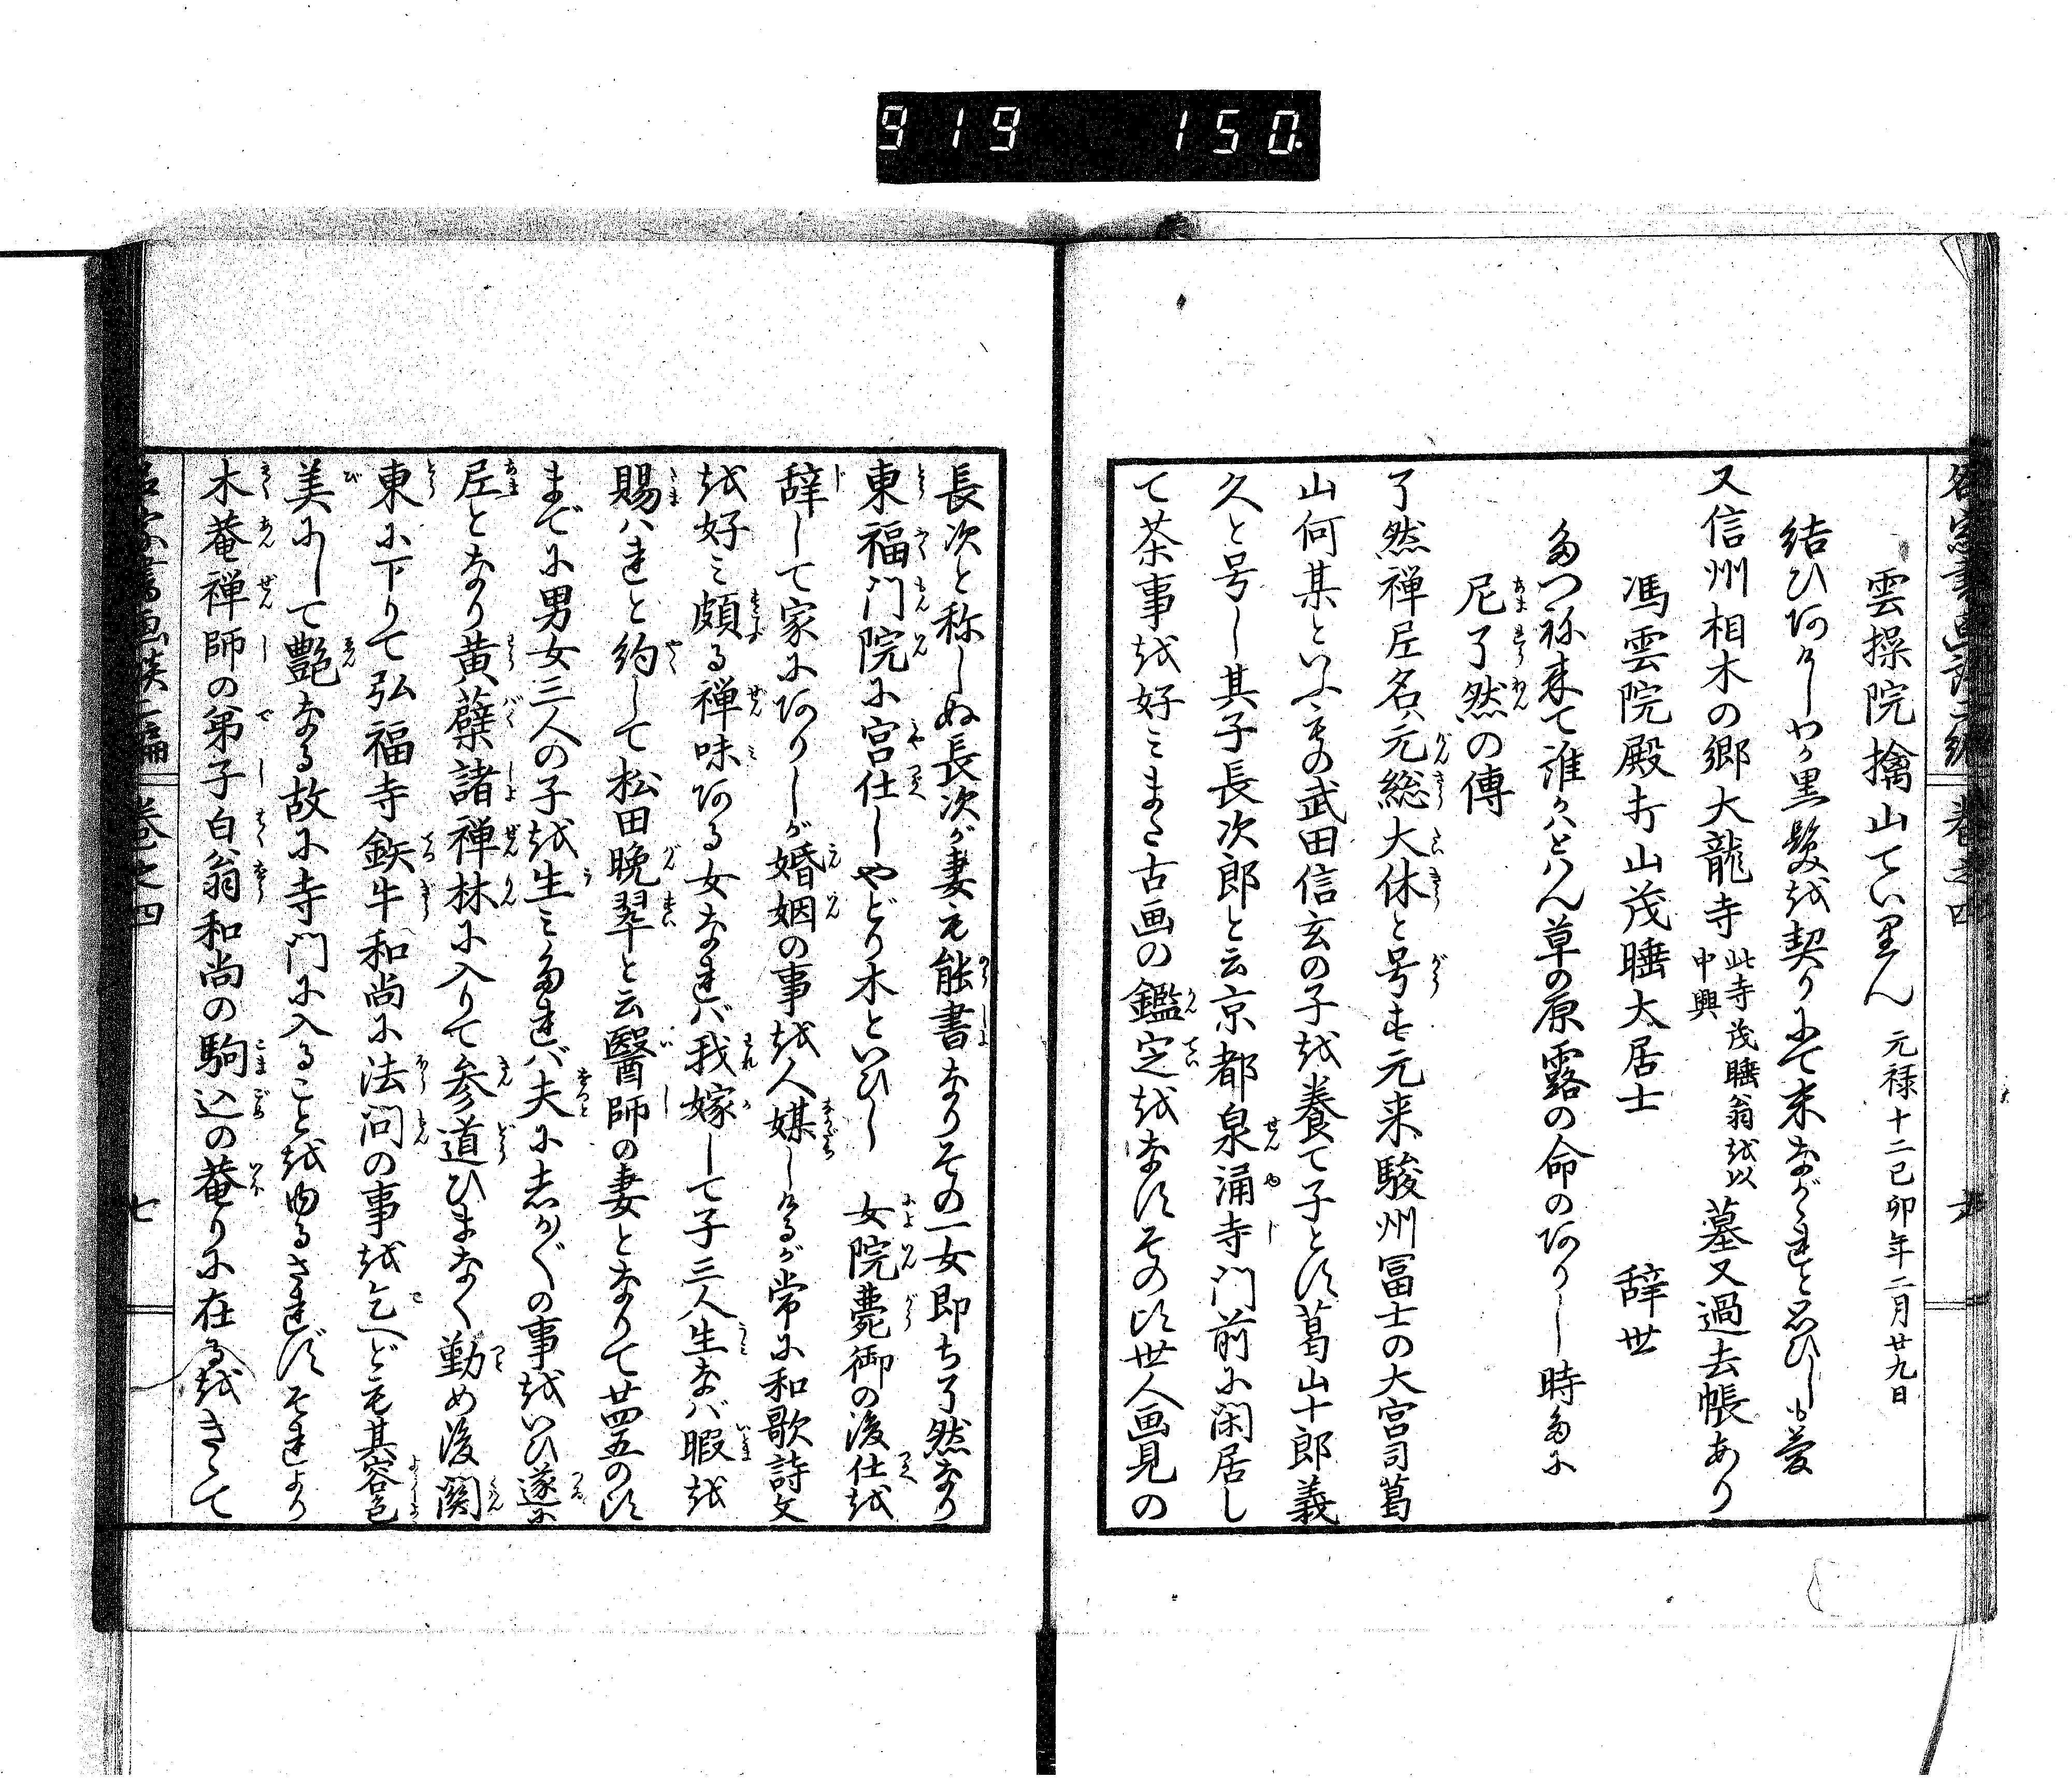 919 150.
雲操院擒山ていりん 元禄十二己卯年二月廿九日
結ひありしわか黒髪越契りにて末ながれと思ひしも夢
又信州相木の郷大龍寺 此寺茂睡翁越以中興 墓又過去帳あり
馮雲院殿寿山茂睡大居士 辞世
たつね来て誰かはとはん草の原露の命のありし時たに
尼了然の傳
了然禅尼名ハ元総大休と号す元来駿州冨士の大宮司葛
山何某といふものゝ武田信玄の子越養て子とす葛山十郎義
久と号し其子長次郎と云京都泉涌寺門前に閑居し
て茶事越好ミまた古画の鑑定越なすその頃世人画見の
長次と称しぬ長次が妻も能書なりその一女即ち了然なり
東福門院に宮仕しやどり木といひし 女院薨御の後仕越
辞して家にありしが婚姻の事越人媒しけるが常に和歌詩文
越好ミ頗る禅味ある女なれバ我嫁して子三人生なバ暇越
賜ハれと約して松田晩翠と云醫師の妻となりて廿四五の頃
までに男女三人の子越生ミたれバ夫にしか〲の事越いひ遂に
尼となり黄蘗諸禅林に入りて参道ひまなく勤め後関
東に下りて弘福寺鉄牛和尚に法問の事越乞へども其容色
美にして艶なる故に寺門に入ること越ゆるされずそれより
木菴禅師の弟子白翁和尚の駒込の菴りに在る越きゝて
名家書画談二編 巻之四 七